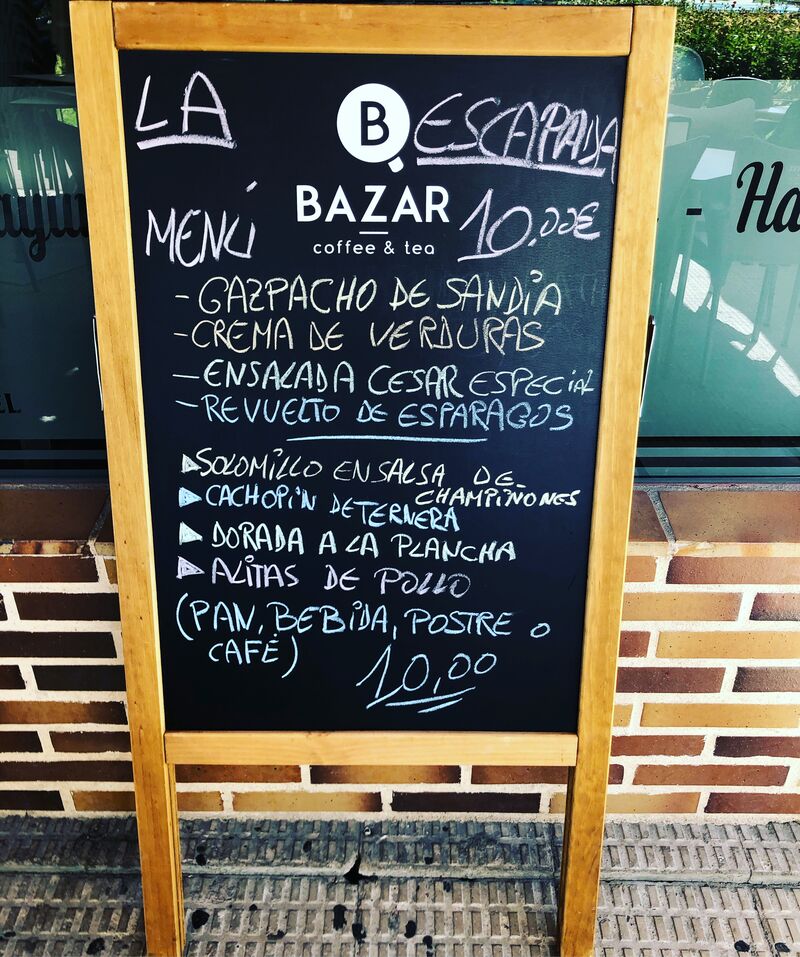 LA B ESCAPADA
BAZAR
coffee & tea
MENÚ 10,00€
- GAZPACHO DE SANDÍA
- CREMA DE VERDURAS
- ENSALADA CESAR ESPECIAL
- REVUELTO DE ESPARAGOS
SOLOMILLO EN SALSA DE
CHAMPIÑONES
CACHOPÍN DE TERNERA
DORADA A LA PLANCHA
ALITAS DE POLLO
(PAN, BEBIDA, POSTRE O
CAFÉ)
10,00
- Ha